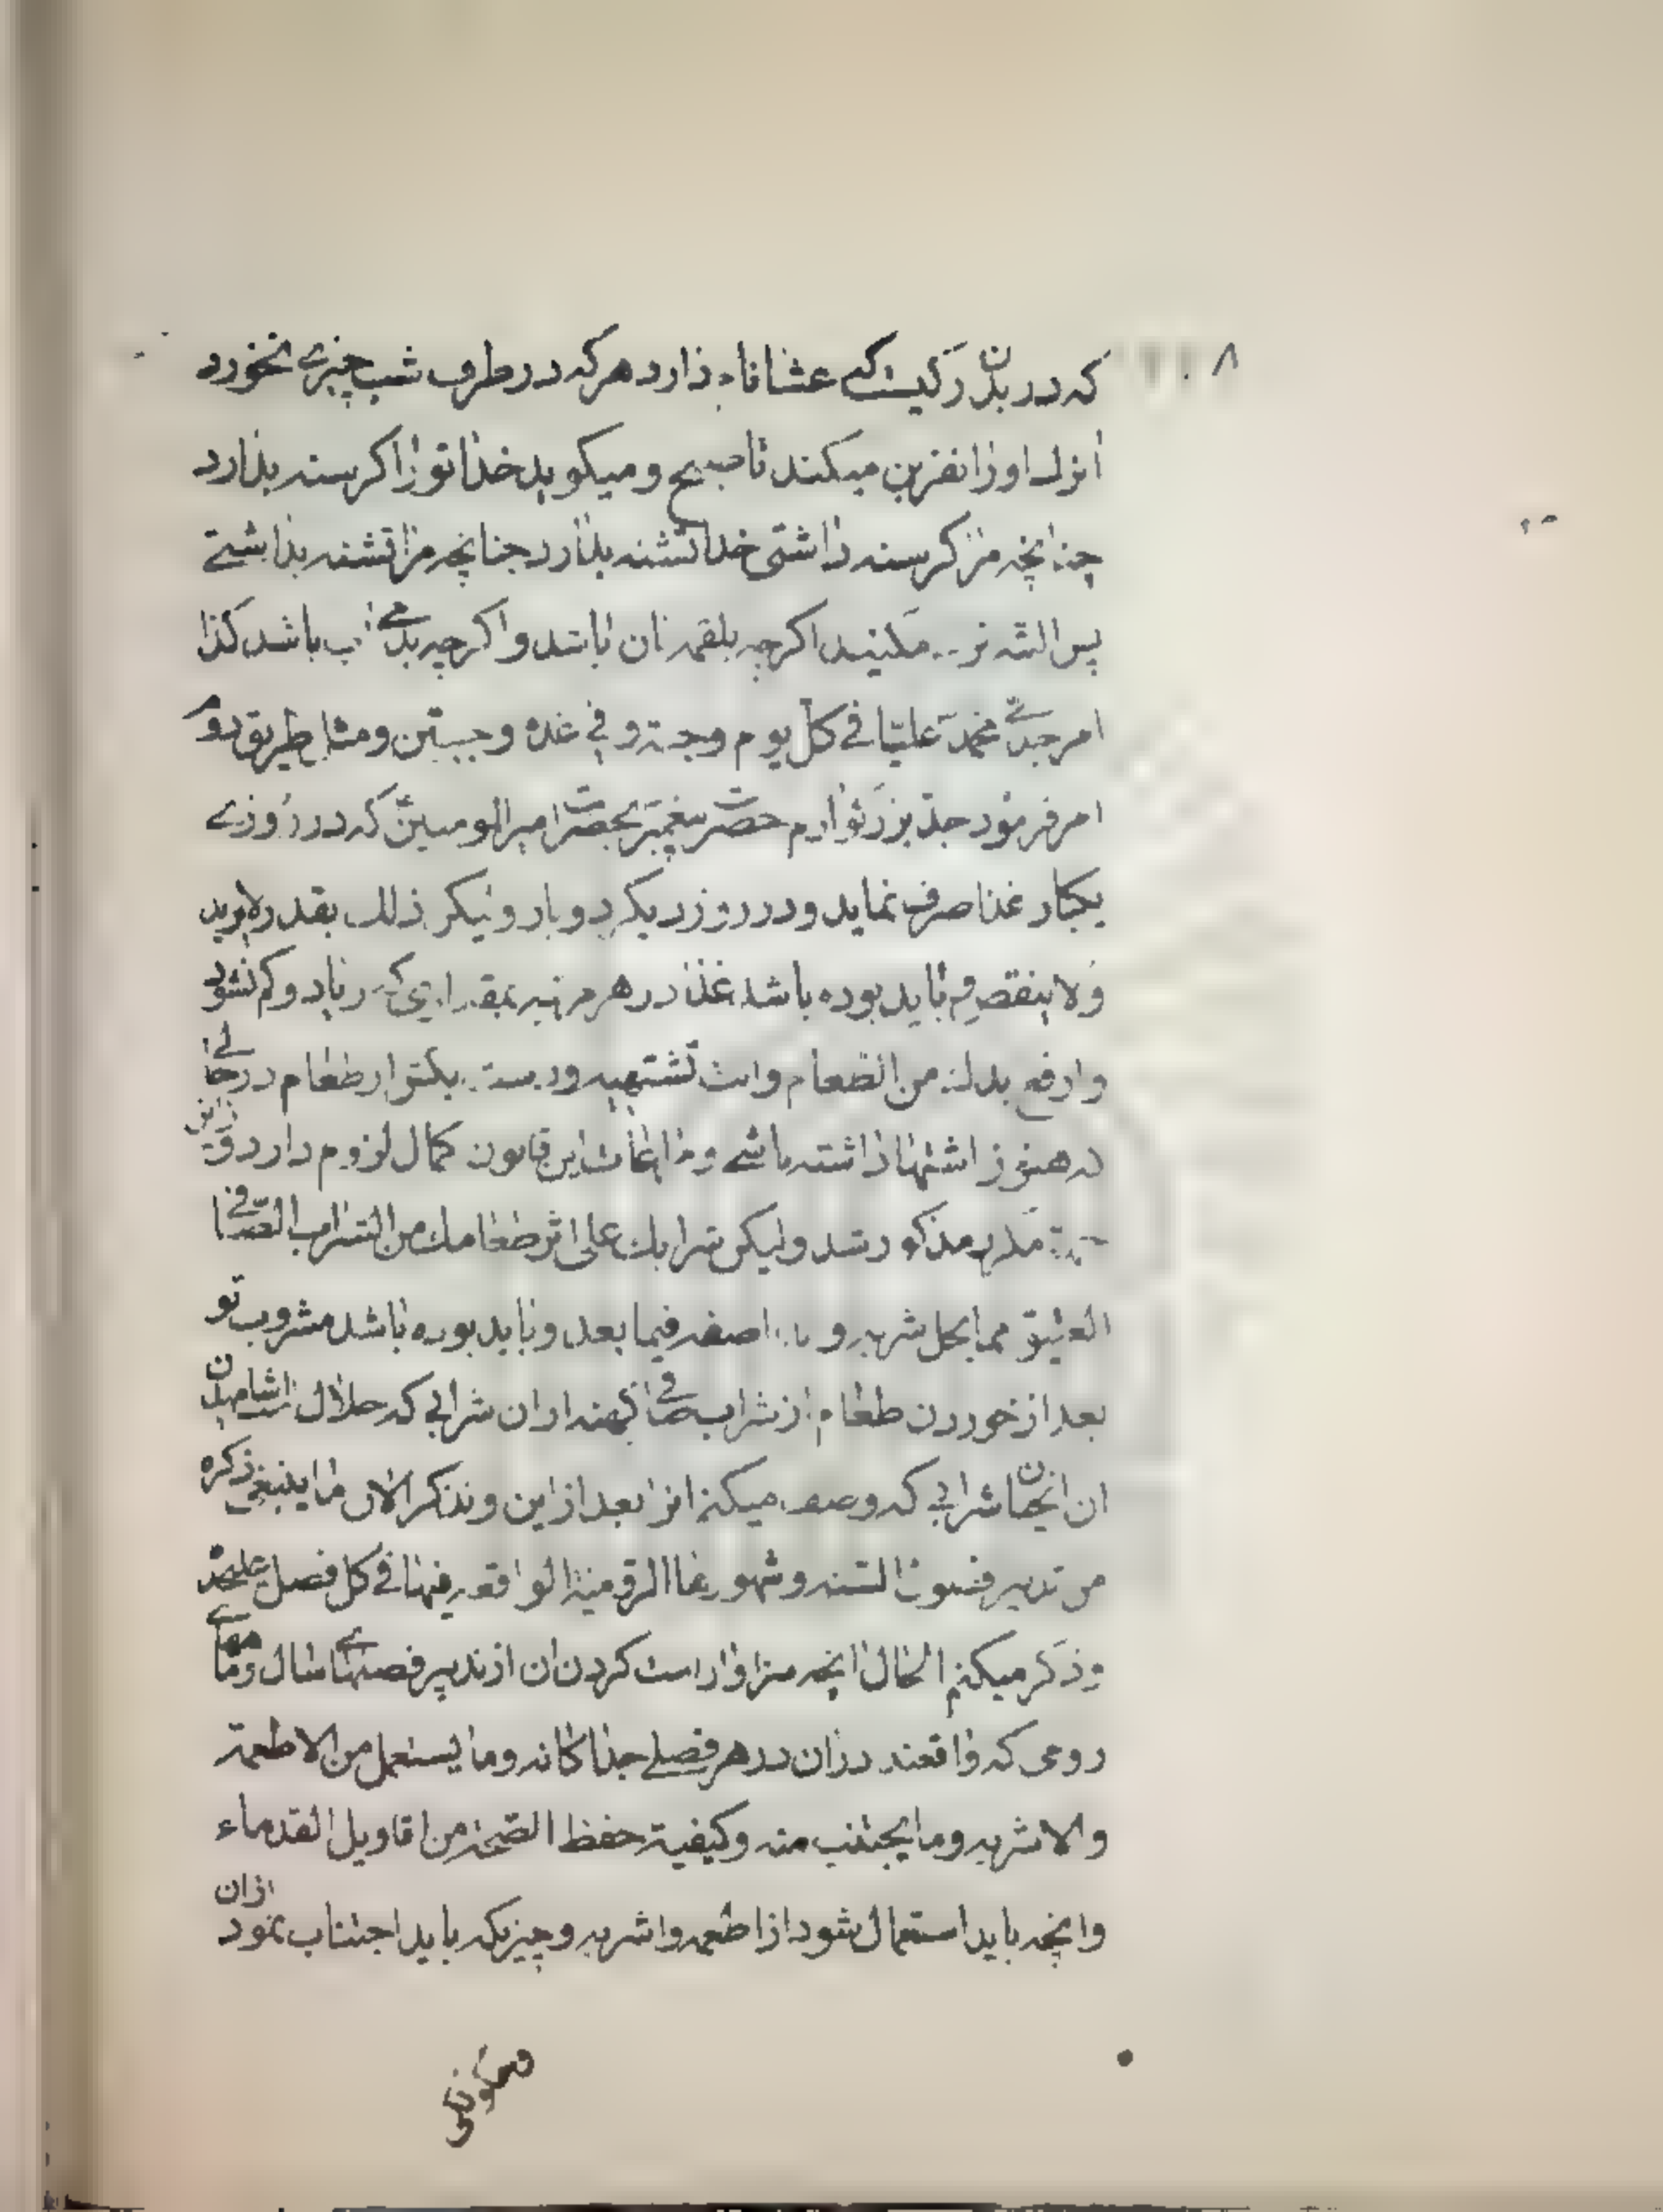 که در بدن رکیست که عشا نام دارد هرکه در طرف شب چیزی نخورد
انرک اورا نفرین میکند تا صبح و میکوید خدا تورا کرسنه بدارد
چنانچه مرا کرسنه داشتی خدا تشنه بدارد چنانچه مرا تشنه بداشتی
پس البته مکنید اکرچه بلقمه نان باشد و اکرچه بدمی اب باشد کذا
امر جدی محمد علیا فی کل یوم وجبة و فی غده وجبتین و مثل طریق دو
امر فرمود جد بزرکوارم حضرت پیغمبر بحضرت امیرالمومنین که در روزی
یکبار غذا صرف نماید و در روز دیکر دوبار ولیکن ذلک بقدر لایزید
ولا ینقص و باید بوده باشد غذا در هر مرتبه بمقداری که زیاد و کم نشود
وارفع یدک من الطعام وانت تشتهیه و دست بکش از طعام در حالی
که هنوز اشتها داشته باشی و مراعات این قانون کمال لزوم دارد
مذکور شد ولیکن شرابک علی اثر طعامک من الشراب الصافی
العتیق مما یحل شربه و اصفه فیما بعد و باید بوده باشد مشروب تو
بعد از خوردن طعام از شراب صافی کهنه از ان شرابی که حلال است اشامیدن
ان انچنان شرابی که وصف میکنم انرا بعد از این و نذکر الان ما ینبغی ذکره
من تدبیر فصول السنه و شهورها الرومیة الواقعه فیها فی کل فصل علیحده
و ذکر میکنم الحال انچه سزاوار است کردن ان از تدبیر فصلهای سال و ماههای
رومی که واقعند دران در هر فصلی جداکانه وما یستعمل من الاطعمة
والاشربه وما یجتنب منه وکیفیة حفظ الصحة من اقاویل القدماء
وانچه باید استعمال شود از اطعمه واشربه وچیزیکه باید اجتناب نمود ازان